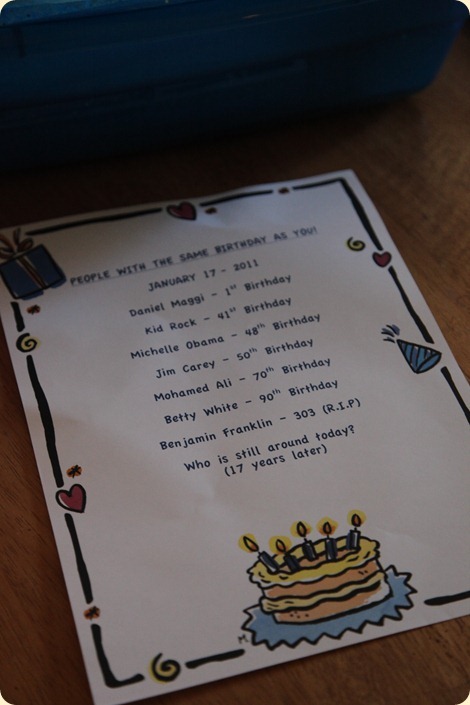 PEOPLE WITH THE SAME BIRTHDAY AS YOU!
JANUARY 17 - 2011
Daniel Maggi - 1st Birthday
Kid Rock - 41st Birthday
Michelle Obama - 48th Birthday
Jim Carey - 50th Birthday
Mohamed Ali - 70th Birthday
Betty White - 90th Birthday
Benjamin Franklin - 303 (R.I.P)
Who is still around today?
(17 years later)
M.